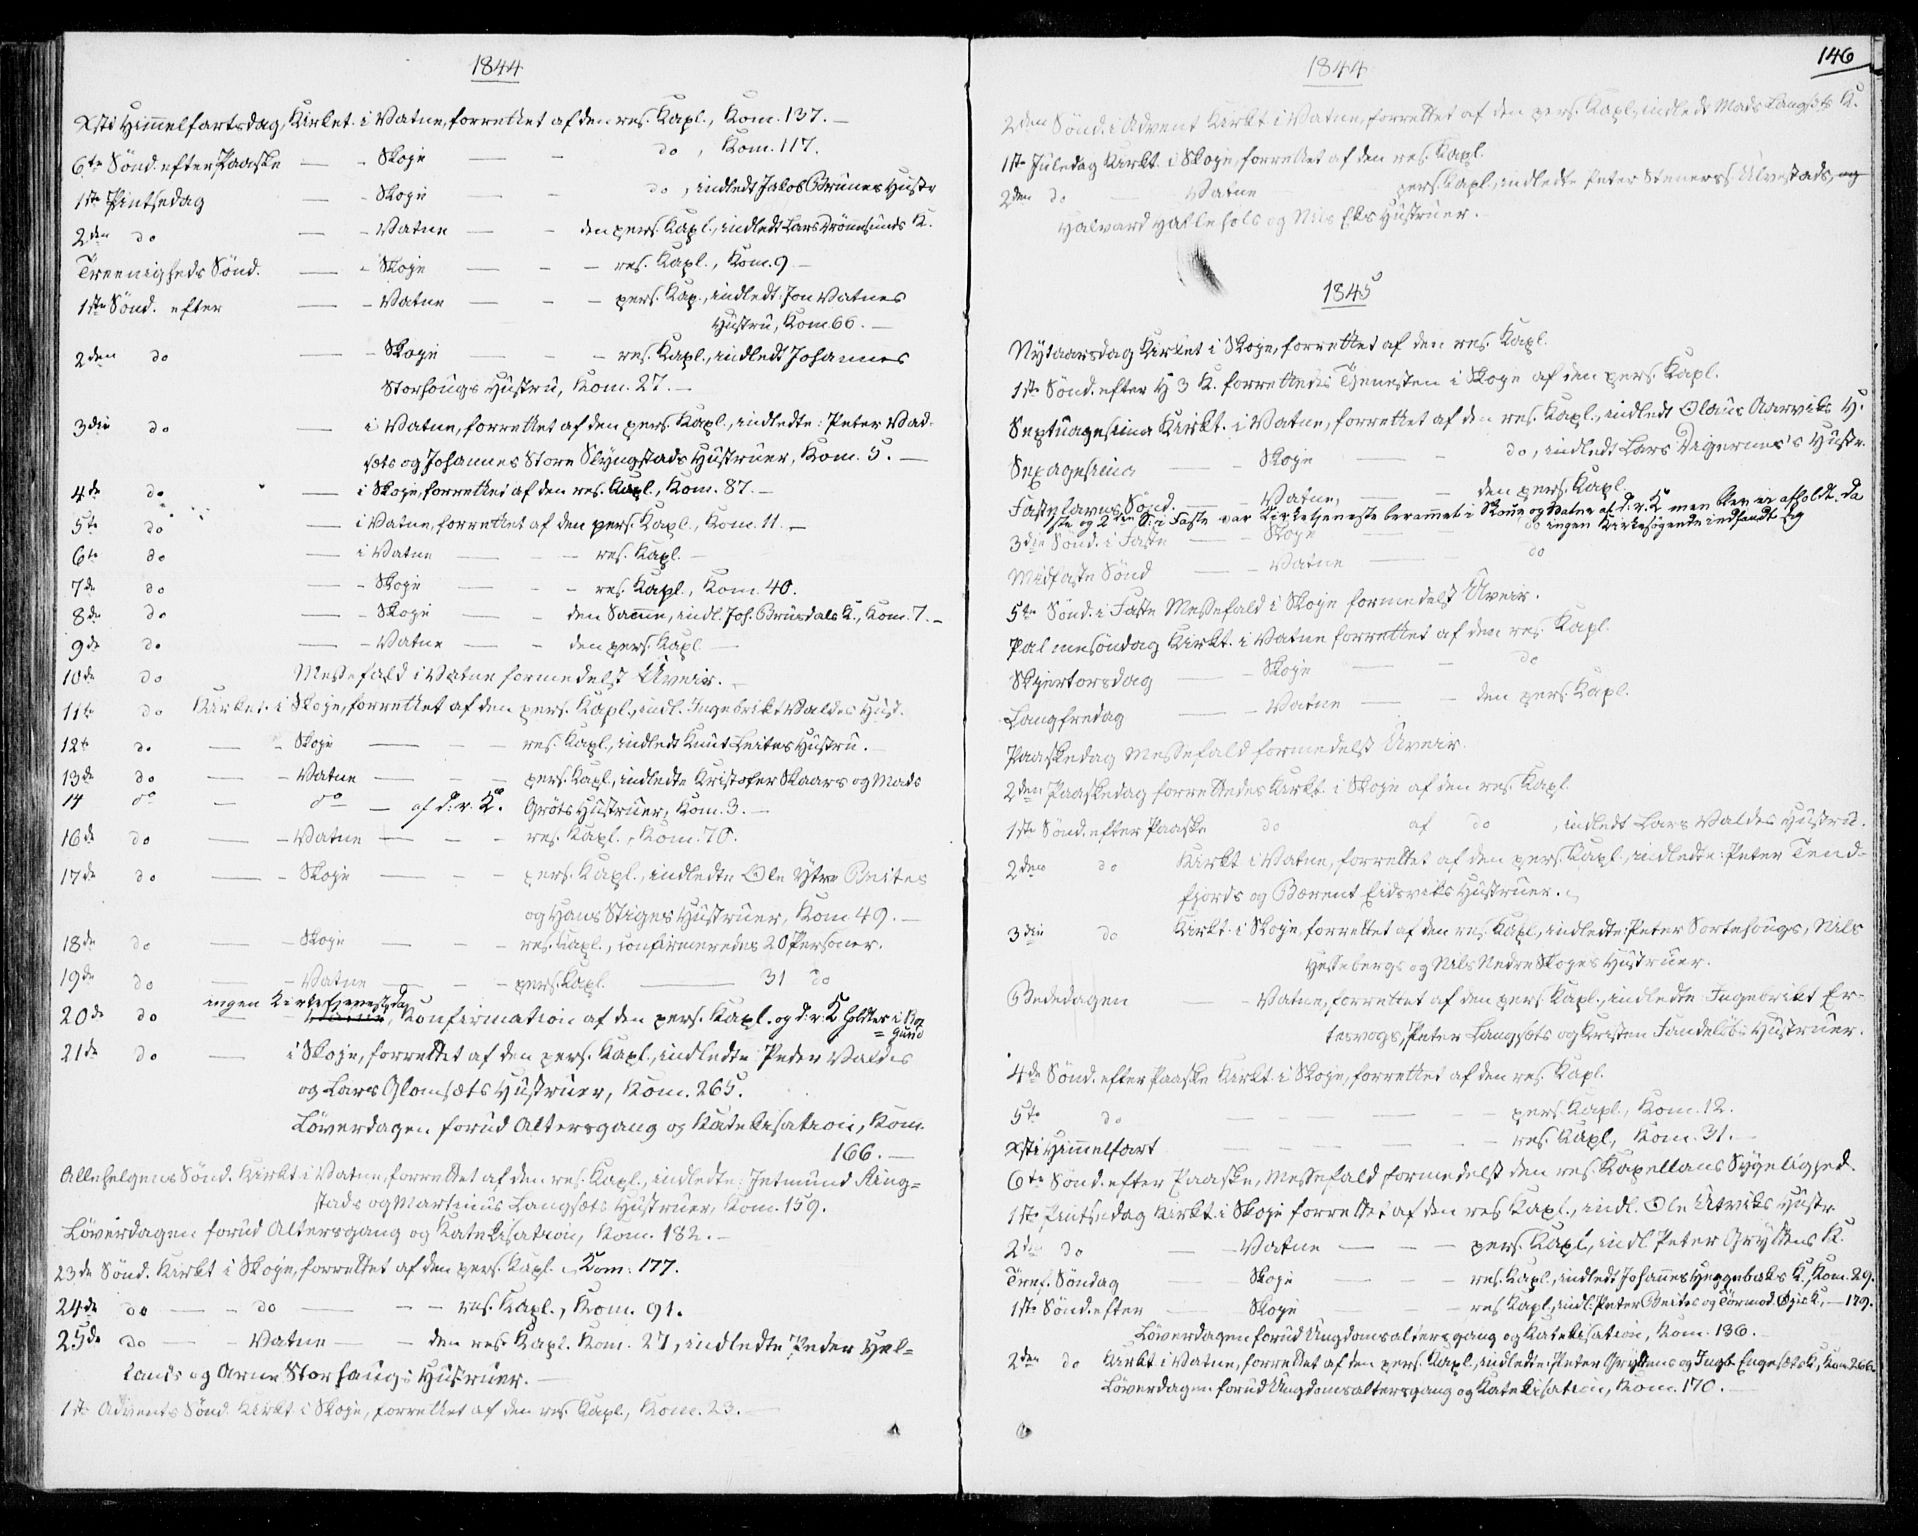 1844
Xsti Himmelfartsdag, Kirket. i Vatne, forrettet af den res. Kapl., Kom. 137. —
6te Sönd. efter Paaske — - Skoje — - do, Kom. 117.
1ste Pintsedag — - Skoje — - do, indledt Jakob Brunes Hustr
2den do — - Vatne — - den pers. Kapl., indledt Lars Drönnesunds K.
Treenigheds Sönd. — - Skoje — - - res. Kapl., Kom. 9 —
1ste Sönd. efter — - Vatne — - - pers. Kap., indledt: Jon Vatnes
Hustru, Kom 66. —
2den do — - Skoje — - - res. Kapl., indledt Johannes
Storhougs Hustru, Kom. 27. —
3die do — i Vatne, forrettet af den pers. Kapl., indledte: Peter Vad-
sæts og Johannes Store Slyngstads Hustruer, Kom. 5. —
4de do — i Skoje, forrettet af den res. Kapl., Kom. 87. —
5te do — i Vatne, forrettet af den pers. Kapl., Kom. 11. —
6te do — i Vatne — - - res. Kapl. —
7de do — - Skoje — - - res. Kapl., Kom. 40.
8de do — - Skoje — - den Samme, indl. Joh. Brusdals K., Kom. 7. —
9de do — - Vatne — - den pers. Kapl —
10de do Messefald i Vatne formedelst Uveir. —
11te do Kirket. i Skoje, forrettet af den pers. Kapl., indl. Ingebrikt Valdes Hust.
12te do — - Skoje — - - res. Kapl., indledt Knud Leites Hustru. —
13de do — - Vatne — - - pers. Kapl., indledte Kristofer Skaars og Mads
14 do — do — af d: r. K. Gröts Hustruer, Kom. 3. —
16de do — - Vatne — - - res. Kapl., Kom. 70.
17de do — - Skoje — - - pers. Kapl., indledte Ole Ytre Beites
og Hans Stiges Hustruer, Kom 49. —
18de do — - Skoje — - - res. Kapl., confirmeredes 20 Personer.
19de do — - Vatne — - - pers. Kapl. — 31 do
ingen Kirketjeneste, da
20de do — Konfirmation af den pers. Kapl. og d: r: K holdtes i Bor
= gund
21de do — i Skoje, forrettet af den pers. Kapl., indledte: Peder Valdes
og Lars Glomsæts Hustruer, Kom. 265.
Löverdagen forud Altersgang og Katekisation, Kom.
166. —
Allehelgens Sönd. Kirkt i Vatne, forrettet af den res. Kapl., indledte: Jetmund Ring=
stads og Martinus Langsæts Hustruer, Kom. 159.
Löverdagen forud Altersgang og Katekisation, Kom. 182. —
23de Sönd. Kirkt i Skoje, forrettet af den pers. Kapl. Kom: 177.
24de do — - do — - - res. Kapl., Kom. 91.
25de do — - Vatne — - den res. Kapl. Kom. 27, indledte Peder Hel=
lands og Arne Storhaugs Hustruer. —
1ste Advents Sönd. Kirkt i Skoje, forrettet af den res. Kapl., Kom. 23. —
146
1844
2den Sönd. i Advent Kirkt i Vatne, forrettet af den pers. Kapl., indledt Mads Langsæts K.
1ste Juledag Kirkt. i Skoje, forrettet af den res. Kapl.
2den do — Vatne pers. Kapl., indledte Peter Steners. Ulvestads, og
Halvard Hallehols og Nils Eks Hustruer. —
1845
Nytaarsdag Kirket i Skoje, forrettet af den res. Kapl.
1ste Sönd. efter H 3 K. forrettedes Tjenesten i Skoje af den pers. Kapl.
Septuagesima Kirkt. i Vatne, forrettet af den res. Kapl., indledt Olaus Aarviks H.
Sexagesima — - Skoje — - do, indledt Lars Digernes's Hustr.
Fastelavns Sönd. — - Vatne, — - den pers. Kapl.
1ste og 2den S: i Faste var Kirketjeneste berammet i Skoue og Vatne af d. r. K men blev ei afholdt, da
ingen Kirkesøgende indfandt sig
3die Sönd. i Faste — - Skoje — - do
Midfaste Sönd — - Vatne — do
5te Sönd. i Faste Messefald i Skoje formedelst Uveir.
Palmesöndag Kirkt. i Vatne forrettet af den res. Kapl.
Skjertorsdag — - Skoje — - do
Langfredag — - Vatne — - den pers. Kapl.
Paaskedag Messefald formedelst Uveir.
2den Paaskedag forrettedes Kirkt. i Skoje af den res. Kapl.
1ste Sönd. efter Paaske do af do, indledt Lars Valdes Hustru.
2den do Kirkt i Vatne, forrettet af den pers. Kapl., indledte: Peter Tend=
fjords og Bærent Eidsviks Hustruer.
3die do Kirkt. i Skoje, forrettet af den res. Kapl., indledte: Peter Sortehougs, Nils
Hessebergs og Nils Nedre Skojes Hustruer.
Bededagen — - Vatne, forrettet af den pers. Kapl., indledte: Ingebrikt Er-
tesvogs, Peter Langsæts og Kristen Hustruer.
4de Sönd. efter Paaske Kirkt. i Skoje, forrettet af den res. Kapl.
5te do — — — — - pers. Kapl., Kom. 12.
Xsti Himmelfart — — — — - res. Kapl, Kom. 31. —
6te Sönd. efter Paaske, Messefald formedelst den res. Kapellans Sygelighed.
1ste Pintsedag Kirkt. i Skoje forrettet af den res Kapl., indl. Ole Utviks Hustr.
2den do — - Vatne — - - pers. Kapl., indl. Peter Gryttens K.
Tref. Söndag — Skoje — - - res. Kapl., indledt Johannes Heggebaks K. Kom. 29.
1ste Sönd. efter — Skoje — - res Kapl., indl. Peter Beites og Tormod K, — 179.
Löverdagen forud Ungdomsaltersgang og Katekisation, Kom. 136. —
2den do Kirkt i Vatne, forrettet af den pers. Kapl., indledte: Peter Gryttens og Ingb Engesæts K, Kom 266.
Löverdagen forud Ungdomsaltersgang og Katekisation, Kom. 170. —